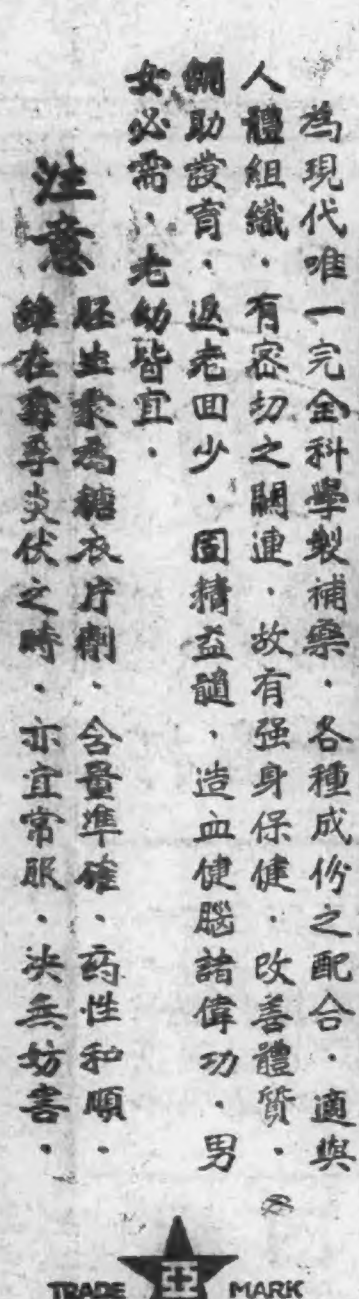 為現代唯一完全科學製補藥．各種成份之配合．適與
人體組織．有密切之關連．故有强身保健．改善體質．
輔助發育．返老回少．固精益髓．造血健腦諸偉功．男
女必需．老幼皆宜．
注意
胚生蒙為糖衣片劑．含量準確．药性和順．
雖在夏季炎伏之時．亦宜常服．決無妨害．
TRADE 亞 MARK